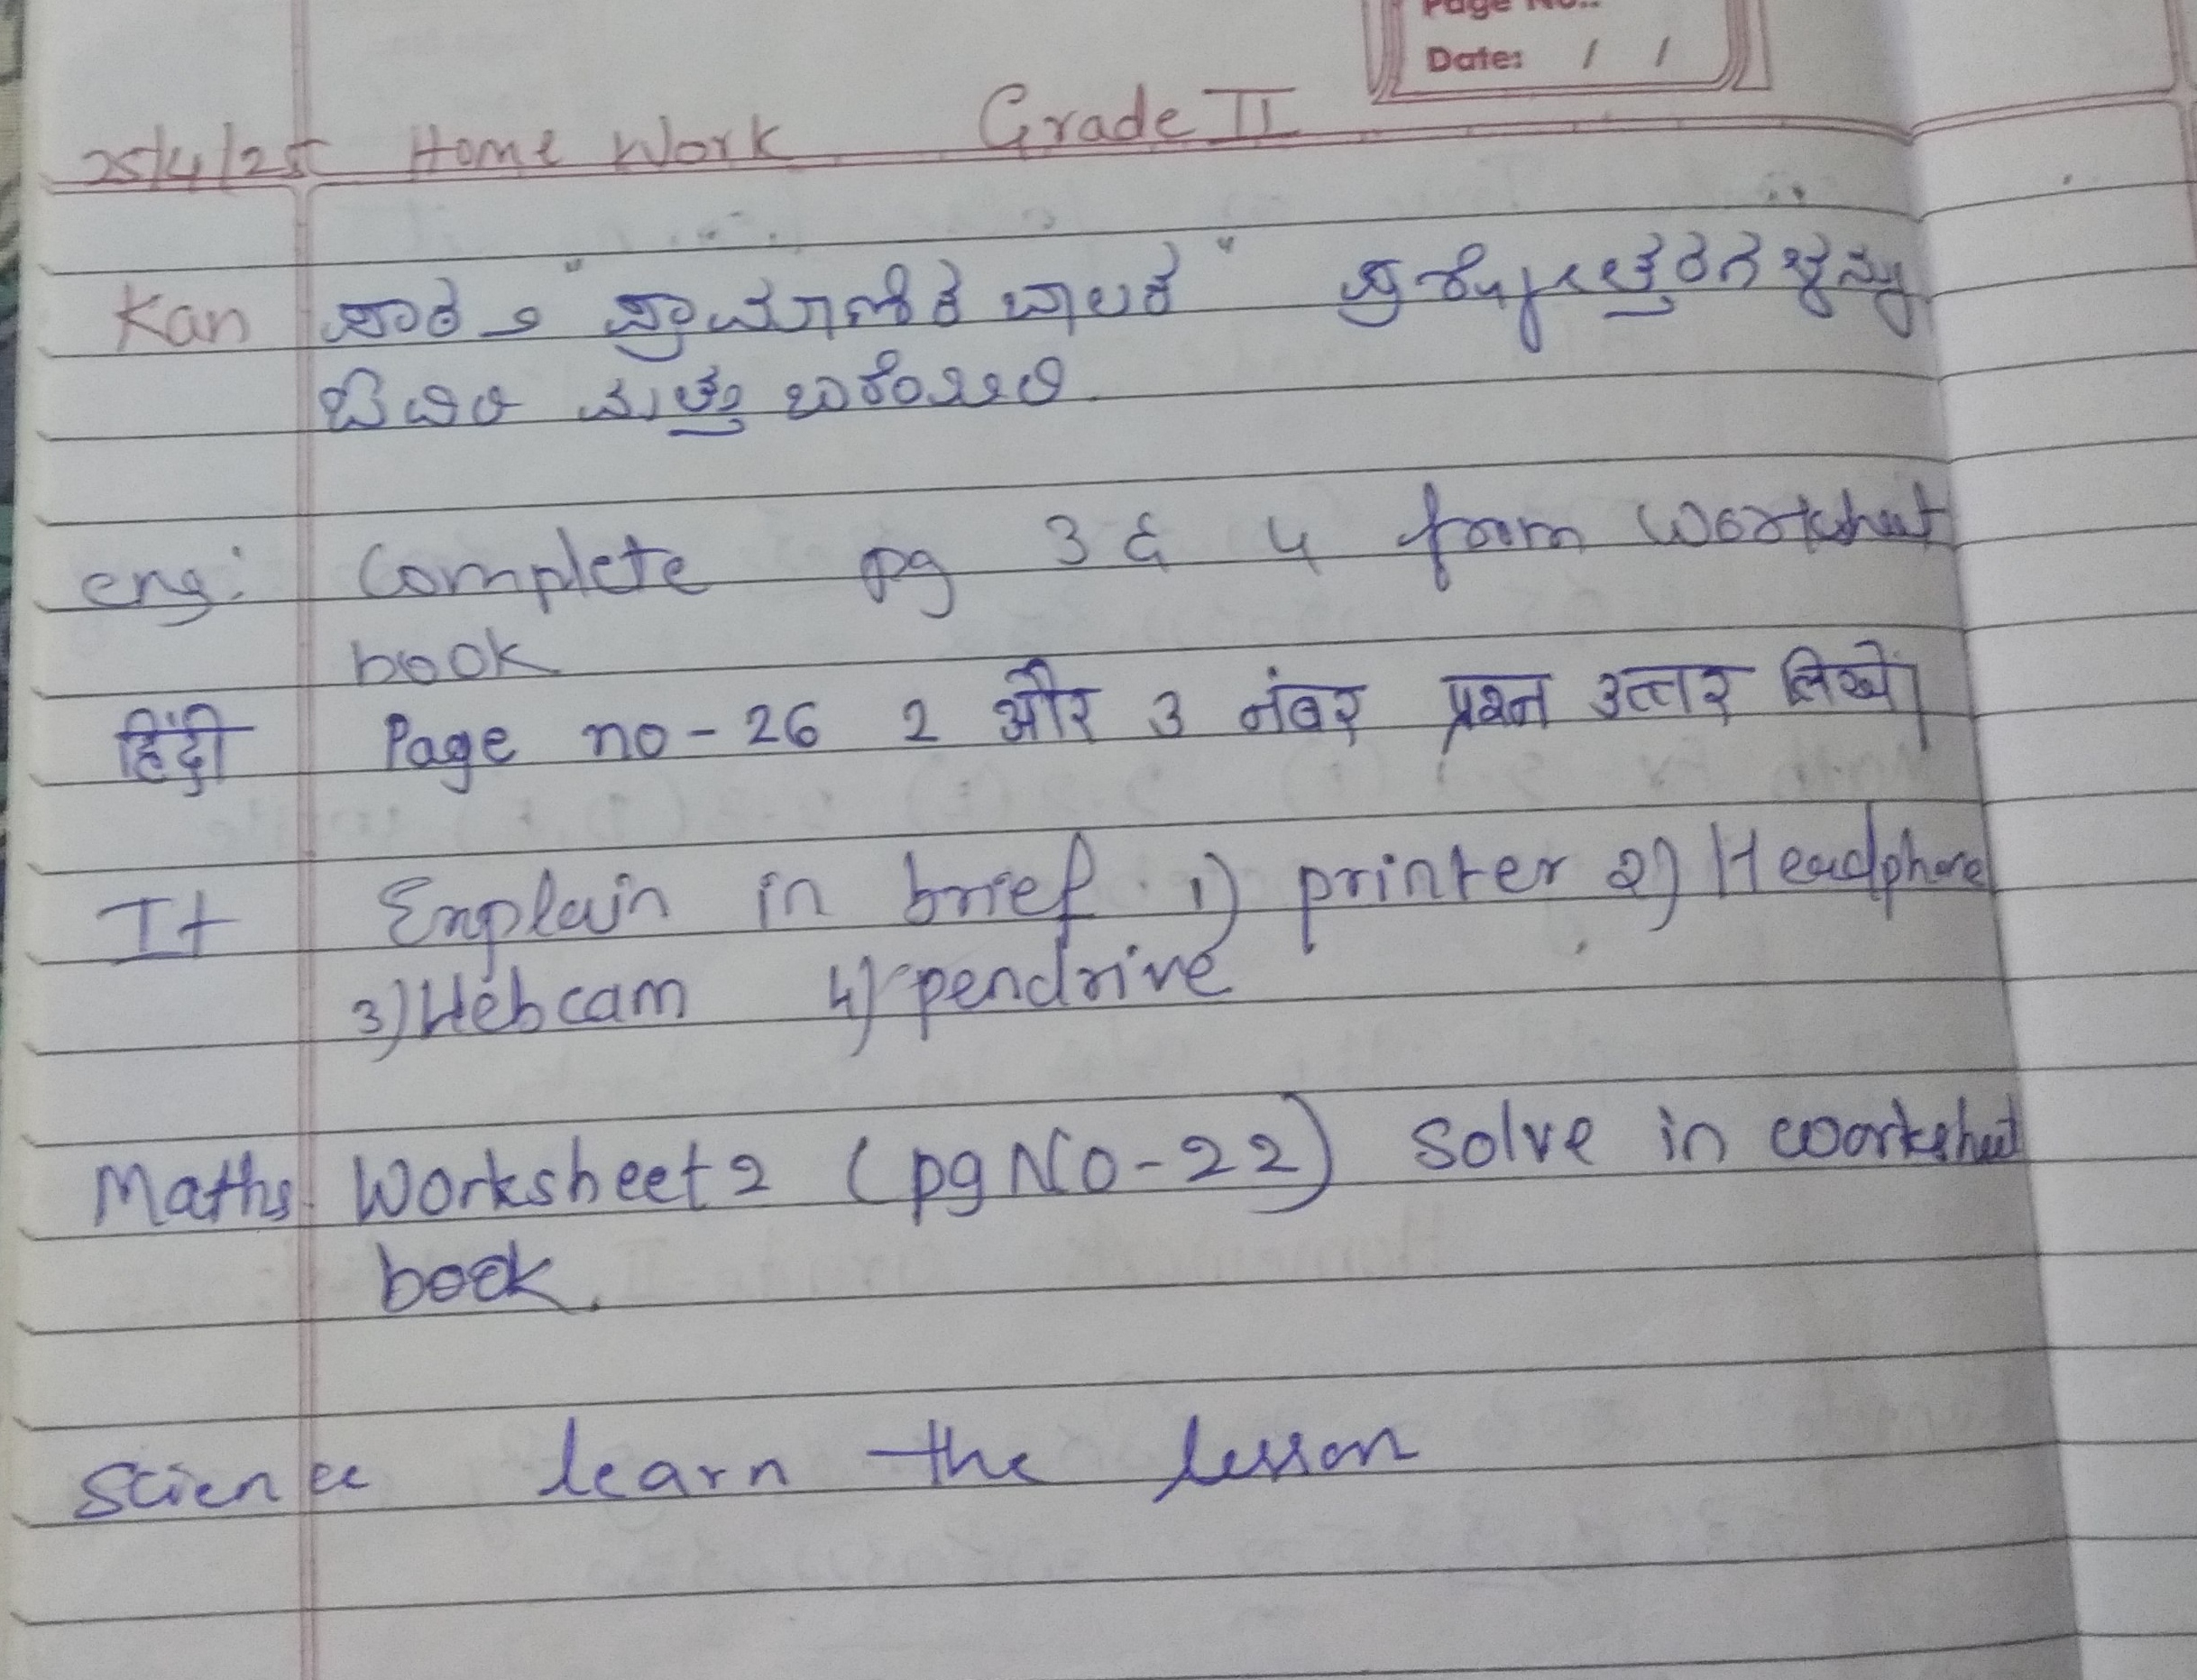 Page No.:
Date: / /
25/4/25 Home Work Grade II
Kan ಪಾಠ ೨ "ಪ್ರಾಮಾಣಿಕ ಬಾಲಕ" ಪ್ರಶ್ನೋತ್ತರಗಳನ್ನು
ಓದಿರಿ ಮತ್ತು ಬರೆಯಿರಿ.
eng: Complete pg 3 & 4 from worksheet
book
हिंदी Page no - 26 2 और 3 नंबर प्रश्न उत्तर लिखें।
It Explain in brief 1) printer 2) Headphone
3) Webcam 4) pendrive
Maths Worksheet 2 (pg No - 22) solve in worksheet
book.
Science learn the lesson